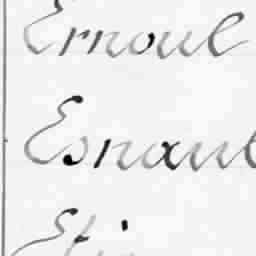 Ernoul
Esnaul